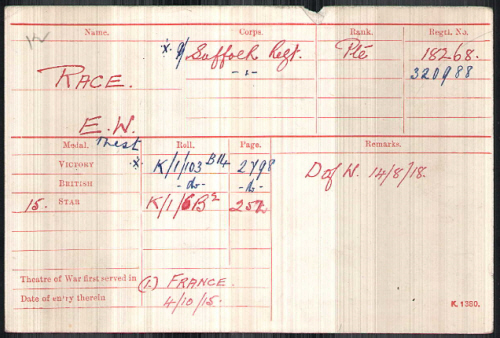 Name. Corps. Rank. Regtl. No.
x. 9/ Suffolk Regt. Pte 18268.
RACE. -"- 320988
E.W.
Medal. Roll. Page. Remarks.
VICTORY x. K/1/103 B14 2798 D of W. 14/8/18.
BRITISH -do- -do-
15. STAR K/1/6B2
Theatre of War first served in (1.) FRANCE.
Date of entry therein 4/10/15.
K. 1380.